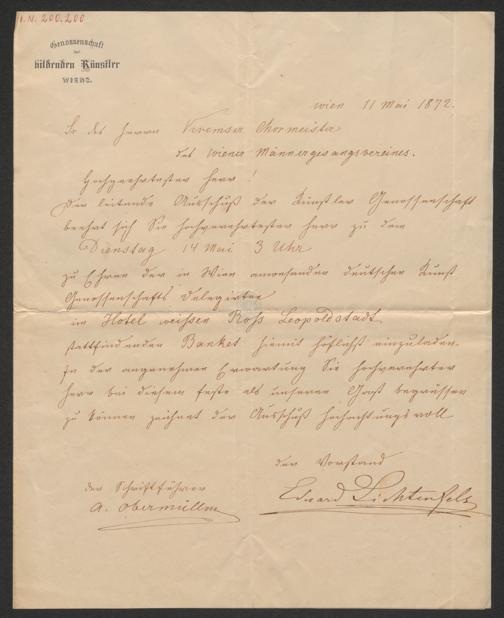 I.N. 200.200
Genossenschaft
der
bildenden Künstler
WIENS.
Wien 11 Mai 1872.
Sr des Herrn Kremser Chormeister
des Wiener Männergesangsvereines.
Hochgeehrtester Herr!
Der leitende Ausschuß der Künstler Genossenschaft
beehrt sich Sie hochverehrtester Herr zu dem
Dienstag 14 Mai 3 Uhr
zu Ehren der in Wien anwesenden deutscher Kunst
Genossenschafts Delegirten
im Hotel weissen Ross Leopoldstadt
stattfindenden Banket hiemit höflichst einzuladen.
In der angenehmen Erwartung Sie hochverehrter
Herr bei diesem Feste als unseren Gast begrüssen
zu können zeichnet der Ausschuß hochachtungsvoll
der Vorstand
der Schriftführer
Eduard Lichtenfels
A. Obermüllner